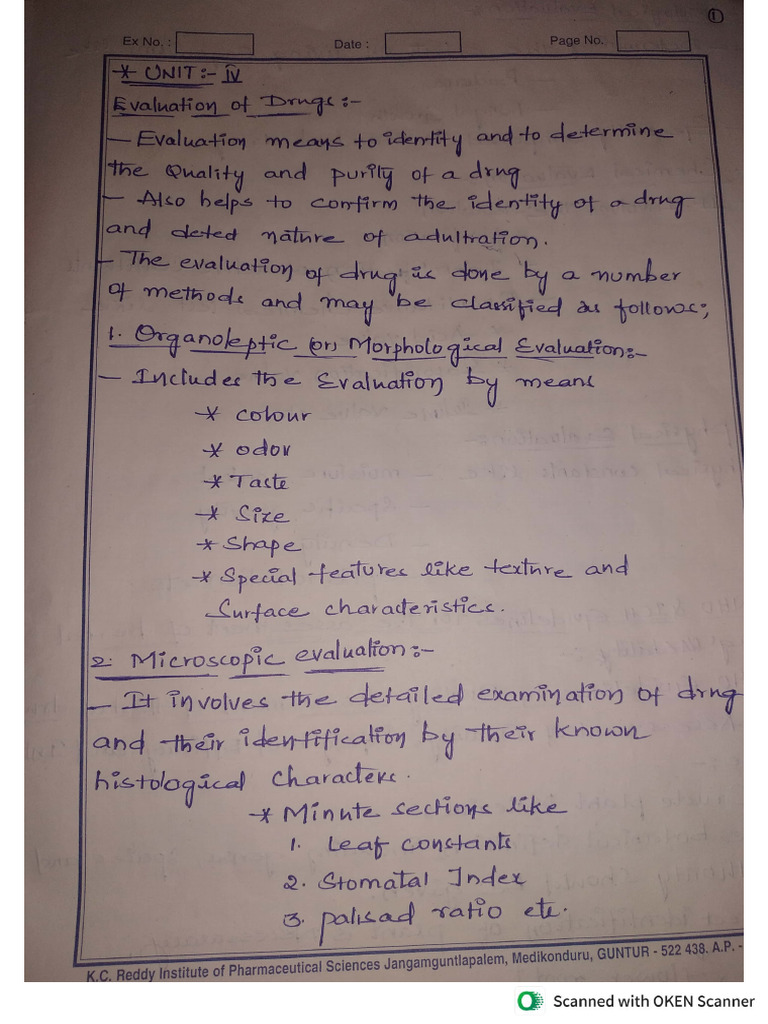 ①
Ex No. : Date : Page No.
* UNIT:- iv
Evaluation of Drugs:-
- Evaluation means to identity and to determine
the Quality and purity of a drug
- Also helps to confirm the identity of a drug
and deted nature of adultration.
- The evaluation of drug is done by a number
of methods and may be classified as follows;
1. Organoleptic (or) Morphological Evaluation:-
- Includes the Evaluation by means
* colour
* odor
* Taste
* Size
* Shape
* Special features like texture and
Surface characteristics.
2. Microscopic evaluation:-
- It involves the detailed examination of drug
and their identification by their known
histological characters.
* Minute sections like
1. Leaf constants
2. Stomatal Index
3. palisad ratio etc.
K.C. Reddy Institute of Pharmaceutical Sciences Jangamguntlapalem, Medikonduru, GUNTUR - 522 438. A.P. -
Scanned with OKEN Scanner